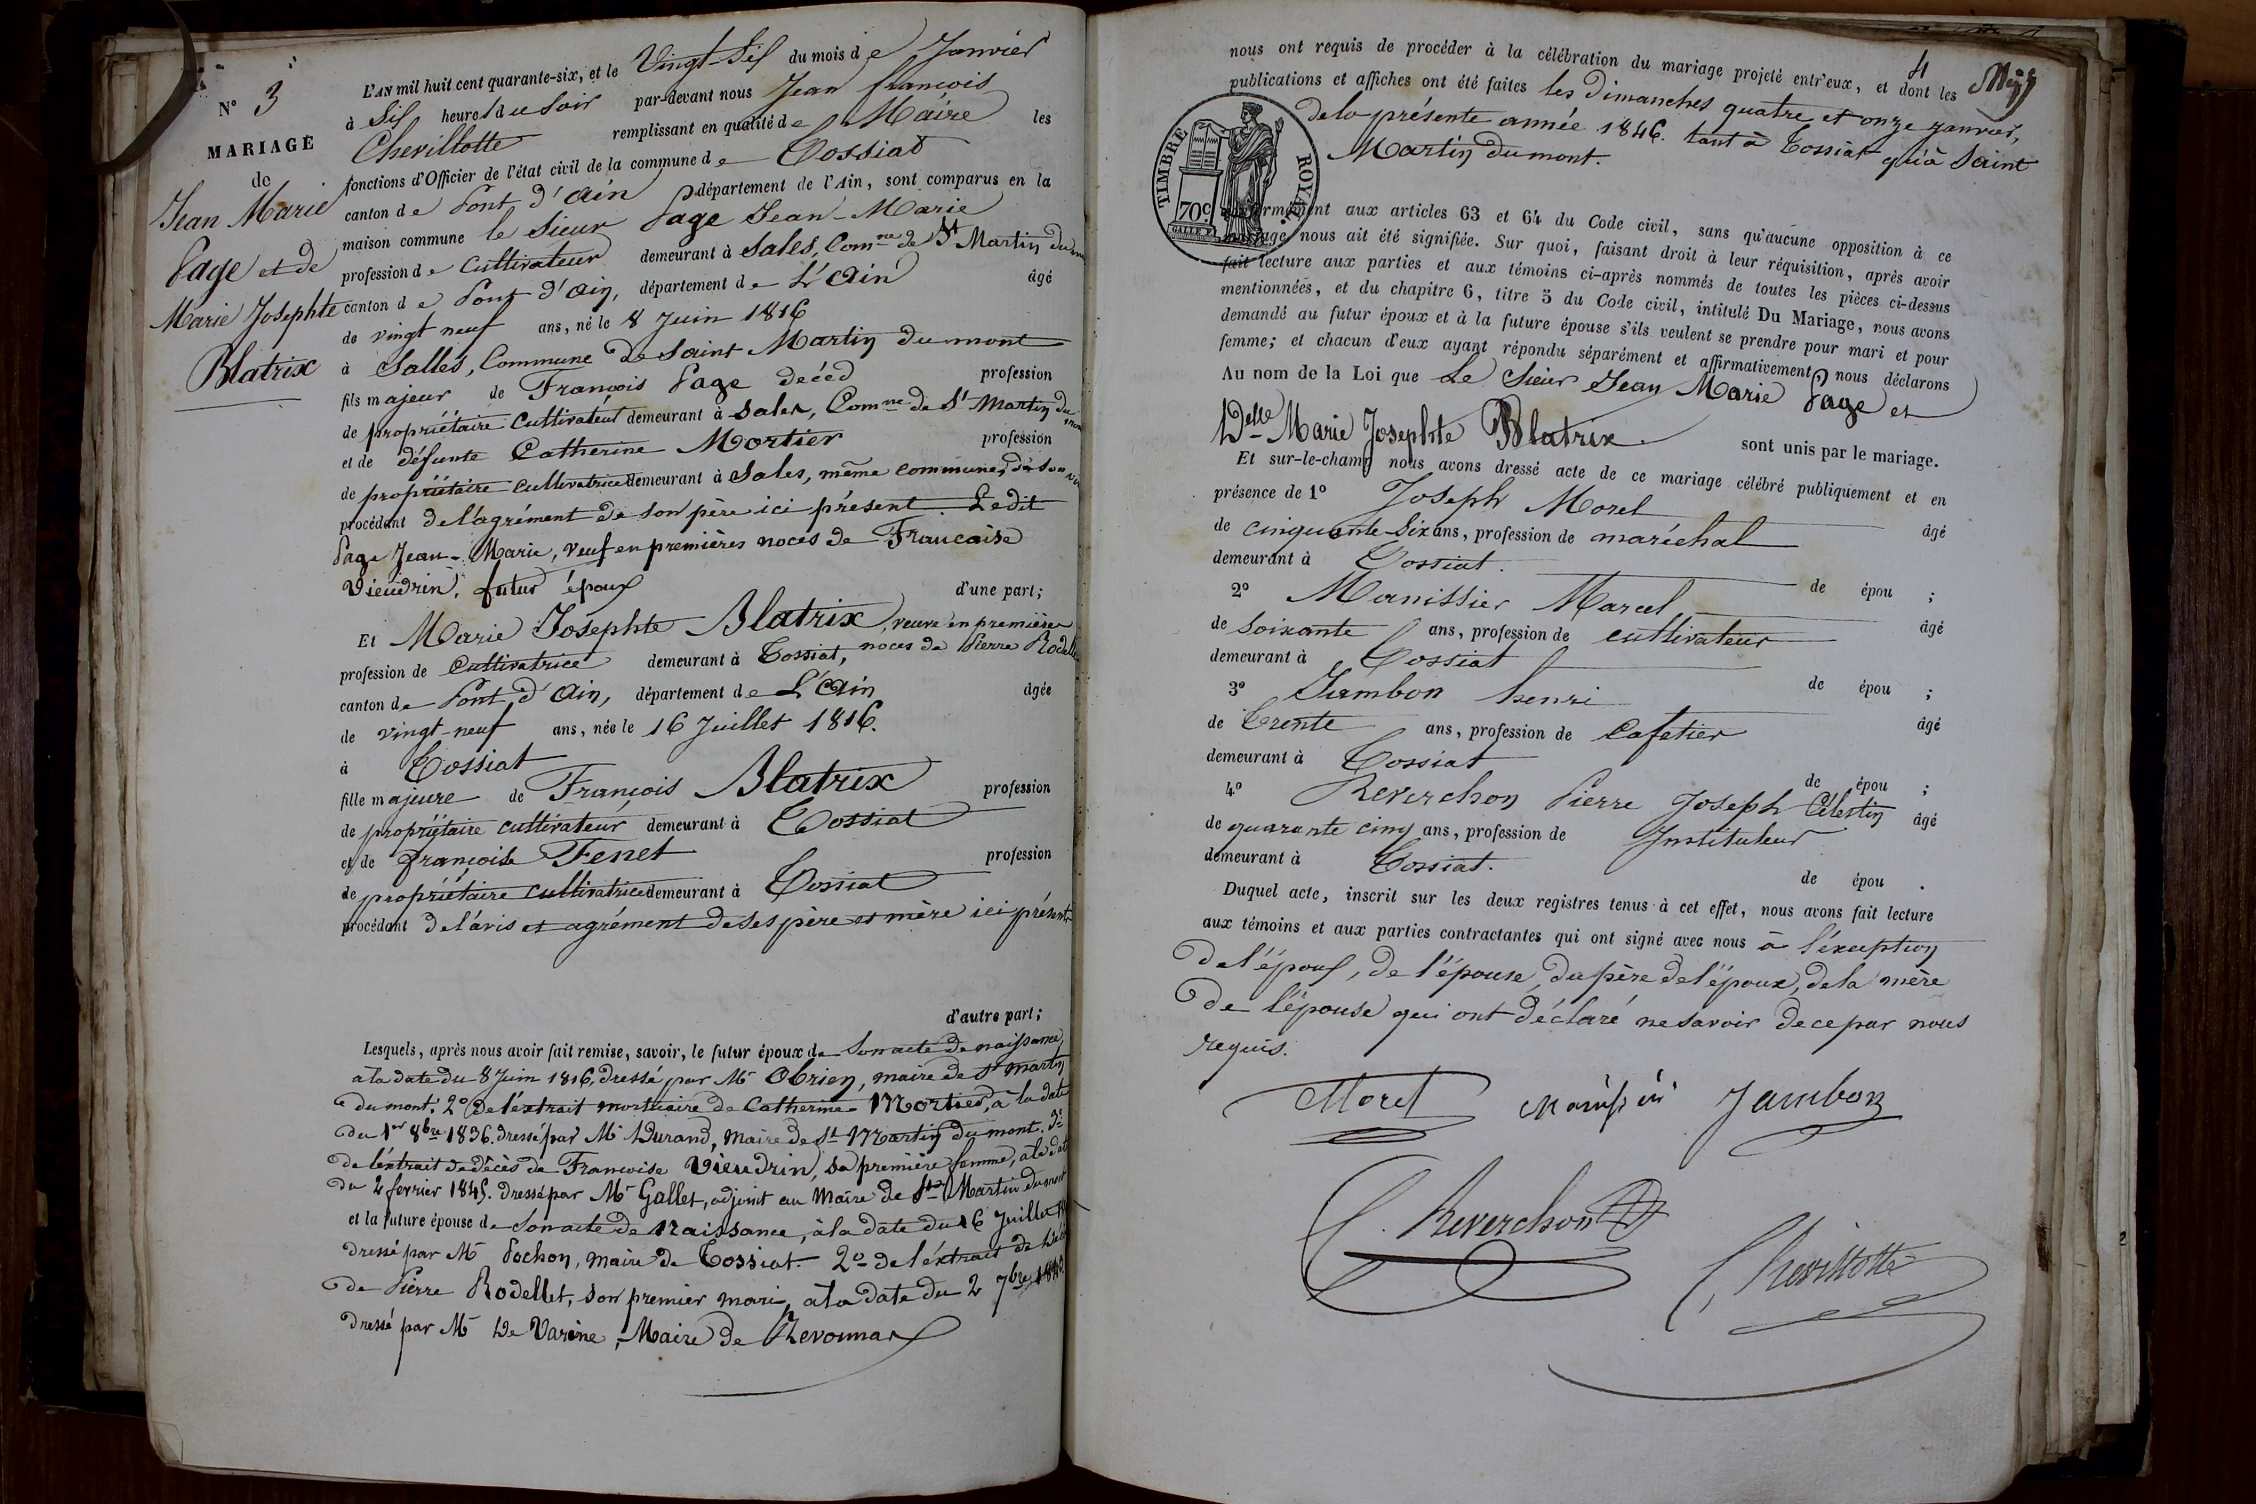 N° 3
MARIAGE
de
Jean Marie
Page et de
Marie Josephte
Blatrix
L'AN mil huit cent quarante-six, et le Vingt-Six du mois de Janvier
à Six heures du soir par-devant nous Jean françois
Chevillotte remplissant en qualité de Maire les
fonctions d'Officier de l'état civil de la commune de Tossiat
canton de Pont d'ain département de l'Ain, sont comparus en la
maison commune le Sieur Page Jean-Marie
profession de Cultivateur demeurant à Sales, Comne de St Martin du
canton de Pont d'ain, département de L'ain âgé
de vingt neuf ans, né le 8 Juin 1816
à Salles, Commune de Saint Martin du mont
fils majeur de François Page décéd profession
de propriétaire Cultivateur demeurant à Sales, Comne de St Martin du
et de défunte Catherine Mortier profession
de propriétaire cultivatrice demeurant à Sales, même commune,
procédant de l'agrément de son père ici présent. Ledit
Page Jean-Marie, Veuf en premières noces de Francoise
Vieudrin, futur époux d'une part;
Et Marie Josephte Blatrix, veuve en premières
noces de Pierre Rodellet
profession de Cultivatrice demeurant à Tossiat,
canton de Pont d'ain, département de L'ain âgée
de vingt-neuf ans, née le 16 Juillet 1816.
à Tossiat
fille majeure de François Blatrix profession
de propriétaire cultivateur demeurant à Tossiat
et de françoise Fenet profession
de propriétaire cultivatrice demeurant à Tossiat
procédant de l'avis et agrément de ses père et mère ici présents
d'autre part;
Lesquels, après nous avoir fait remise, savoir, le futur époux de Son acte de naissance,
à la date du 8 Juin 1816, dressé par Mr Obrien, maire de St martin
du mont. 2° de l'éxtrait mortuaire de Catherine Mortier, à la date
du 1er 8bre 1836. dressé par Mr Durand, Maire de St Martin du mont. 3°
de l'éxtrait de décès de Francoise Vieudrin, sa première femme, à la date
du 2 fevrier 1845. dressé par Mr Gallet, adjoint au Maire de St Martin du mont
et la future épouse de Son acte de Naissance, à la date du 16 Juillet
dressé par Mr Pochon, maire de Tossiat. 2° de l'éxtrait de décès
de Pierre Rodellet, son premier mari, à la date du 2 7bre
dressé par Mr De Varine, Maire de Revonnas
4
nous ont requis de procéder à la célébration du mariage projeté entr'eux, et dont les
publications et affiches ont été faites les Dimanches quatre et onze janvier,
de la présente année 1846. tant à Tossiat qu'à Saint
Martin du mont.
TIMBRE ROYAL
70c
conformément aux articles 63 et 64 du Code civil, sans qu'aucune opposition à ce
mariage nous ait été signifiée. Sur quoi, faisant droit à leur réquisition, après avoir
fait lecture aux parties et aux témoins ci-après nommés de toutes les pièces ci-dessus
mentionnées, et du chapitre 6, titre 5 du Code civil, intitulé Du Mariage, nous avons
demandé au futur époux et à la future épouse s'ils veulent se prendre pour mari et pour
femme; et chacun d'eux ayant répondu séparément et affirmativement, nous déclarons
Au nom de la Loi que Le Sieur Jean Marie Page et
Delle Marie Josephte Blatrix sont unis par le mariage.
Et sur-le-champ nous avons dressé acte de ce mariage célébré publiquement et en
présence de 1° Joseph Morel âgé
de cinquante-six ans, profession de maréchal
demeurant à Tossiat. de épou ;
2° Manissier Marcel âgé
de soixante ans, profession de cultivateur
demeurant à Tossiat de épou ;
3° Jambon henri âgé
de Trente ans, profession de Cafetier
demeurant à Tossiat de épou ;
4° Reverchon Pierre Joseph Célestin âgé
de quarante cinq ans, profession de Instituteur
demeurant à Tossiat. de épou .
Duquel acte, inscrit sur les deux registres tenus à cet effet, nous avons fait lecture
aux témoins et aux parties contractantes qui ont signé avec nous à l'éxception
de l'époux, de l'épouse, du père de l'époux, de la mère
de l'épouse qui ont déclaré ne savoir de ce par nous
requis.
Morel Jambon
C. Reverchon
Chevillotte